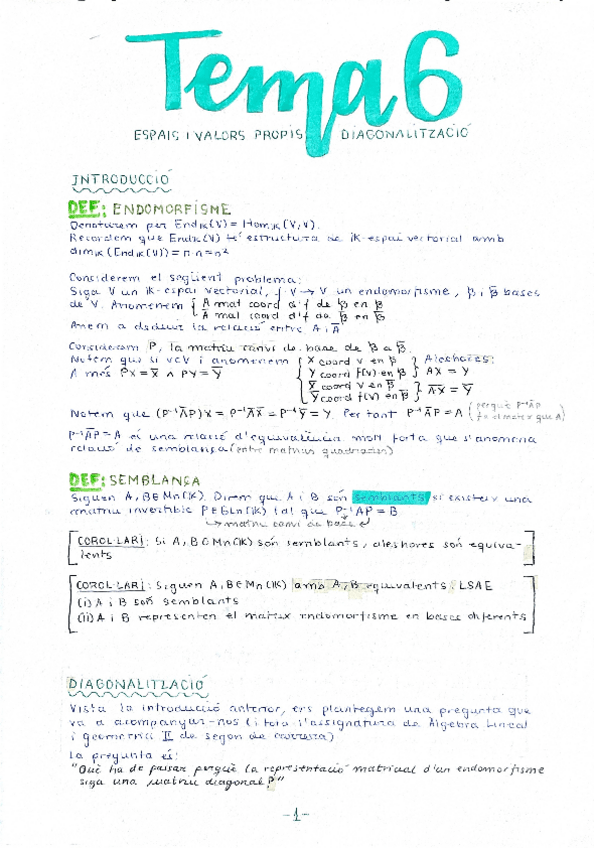 Tema 6
ESPAIS I VALORS PROPIS DIAGONALITZACIÓ
INTRODUCCIÓ
DEF: ENDOMORFISME
Denotarem per EndIK(V) = HomIK(V,V).
Recordem que EndIK(V) té estructura de IK-espai vectorial amb
dimIK(EndIK(V)) = n·n = n²
Considerem el següent problema:
Siga V un IK-espai vectorial, f: V → V un endomorfisme, β i β̅ bases
de V. Anomenem { A mat coord d'f de β en β
A̅ mat coord d'f de β̅ en β̅
Anem a deduir la relació entre A i A̅
Considerem P, la matriu canvi de base de β a β̅.
Notem que si v∈V i anomenem { X coord v en β } Aleshores:
A més PX = X̅ ∧ PY = Y̅ Y coord f(v) en β AX = Y
X̅ coord v en β̅
Y̅ coord f(v) en β̅ A̅X̅ = Y̅
Notem que (P⁻¹A̅P)X = P⁻¹A̅X̅ = P⁻¹Y̅ = Y. Per tant P⁻¹A̅P = A (perquè P⁻¹A̅P
fa el mateix que A)
P⁻¹A̅P = A és una relació d'equivalència molt forta que s'anomena
relació de semblança (entre matrius quadrades)
DEF: SEMBLANÇA
Siguen A, B ∈ Mn(IK). Direm que A i B són semblants si existeix una
matriu invertible P ∈ GLn(IK) tal que P⁻¹AP = B
matriu canvi de base
COROL·LARI: Si A, B ∈ Mn(IK) són semblants, aleshores són equiva-
lents
COROL·LARI: Siguen A, B ∈ Mn(IK) amb A, B equivalents. LSAE
(i) A i B són semblants
(ii) A i B representen el mateix endomorfisme en bases diferents
DIAGONALITZACIÓ
Vista la introducció anterior, ens plantegem una pregunta que
va a acompanyar-nos (i tota l'assignatura de Àlgebra Lineal
i geometria II de segon de carrera)
La pregunta és:
"Què ha de passar perquè la representació matricial d'un endomorfisme
siga una matriu diagonal?"
-1-